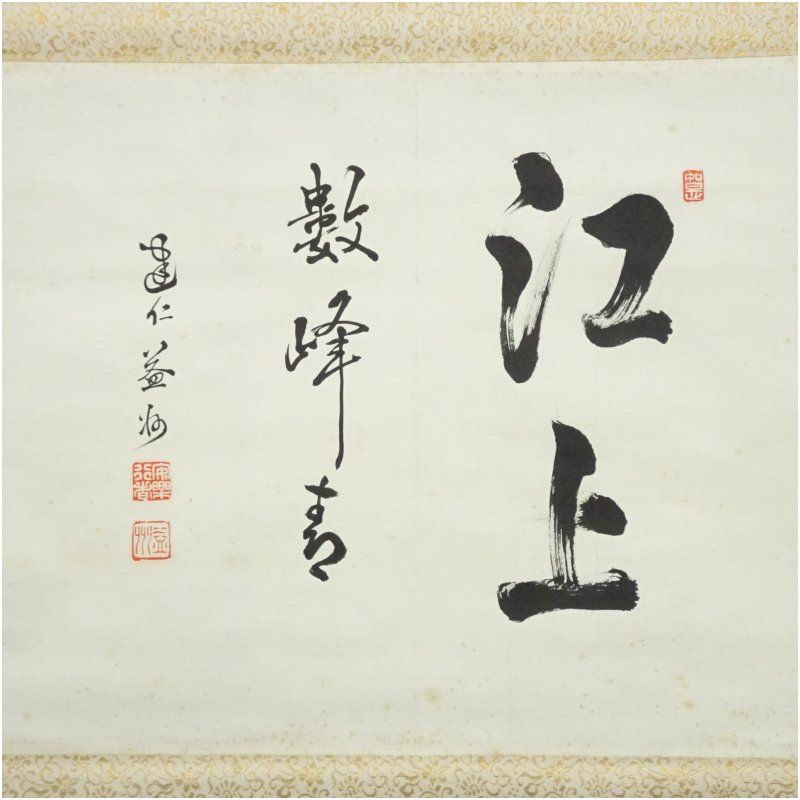 江上
數峰青
建仁益州
益州